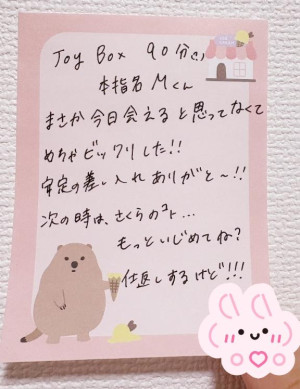 Joy Box 90分c〃
本指名 Mくん
まさか今日会えると思ってなくて
めちゃビックリした!!
安定の差し入れありがと〜!!
次の時は、さくらのコト...
もっといじめてね?
仕返しするけど!!!